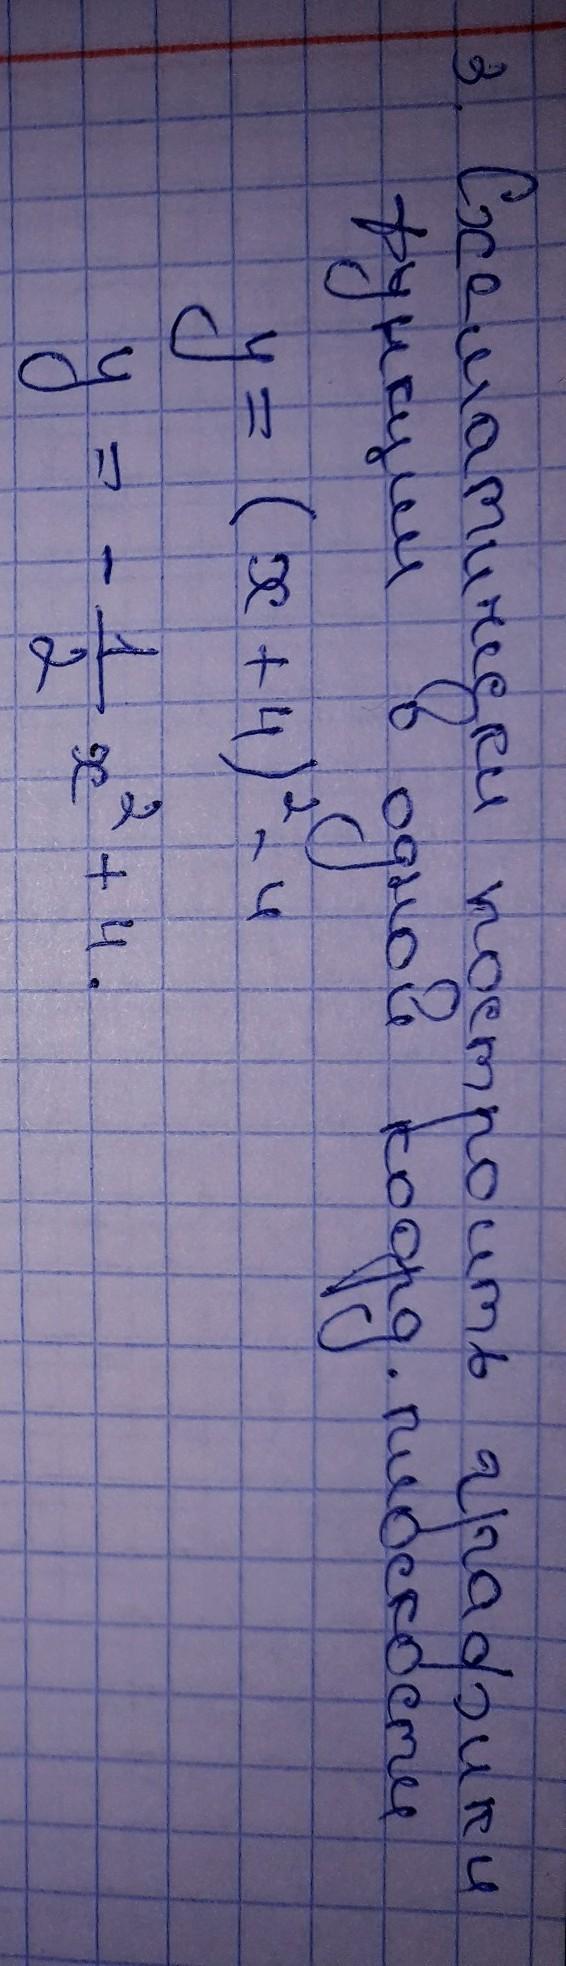 3. Схематически построить графики
функции в одной коорд. плоскости
y = (x + 4)² - 4
y = - 1/2 x² + 4.